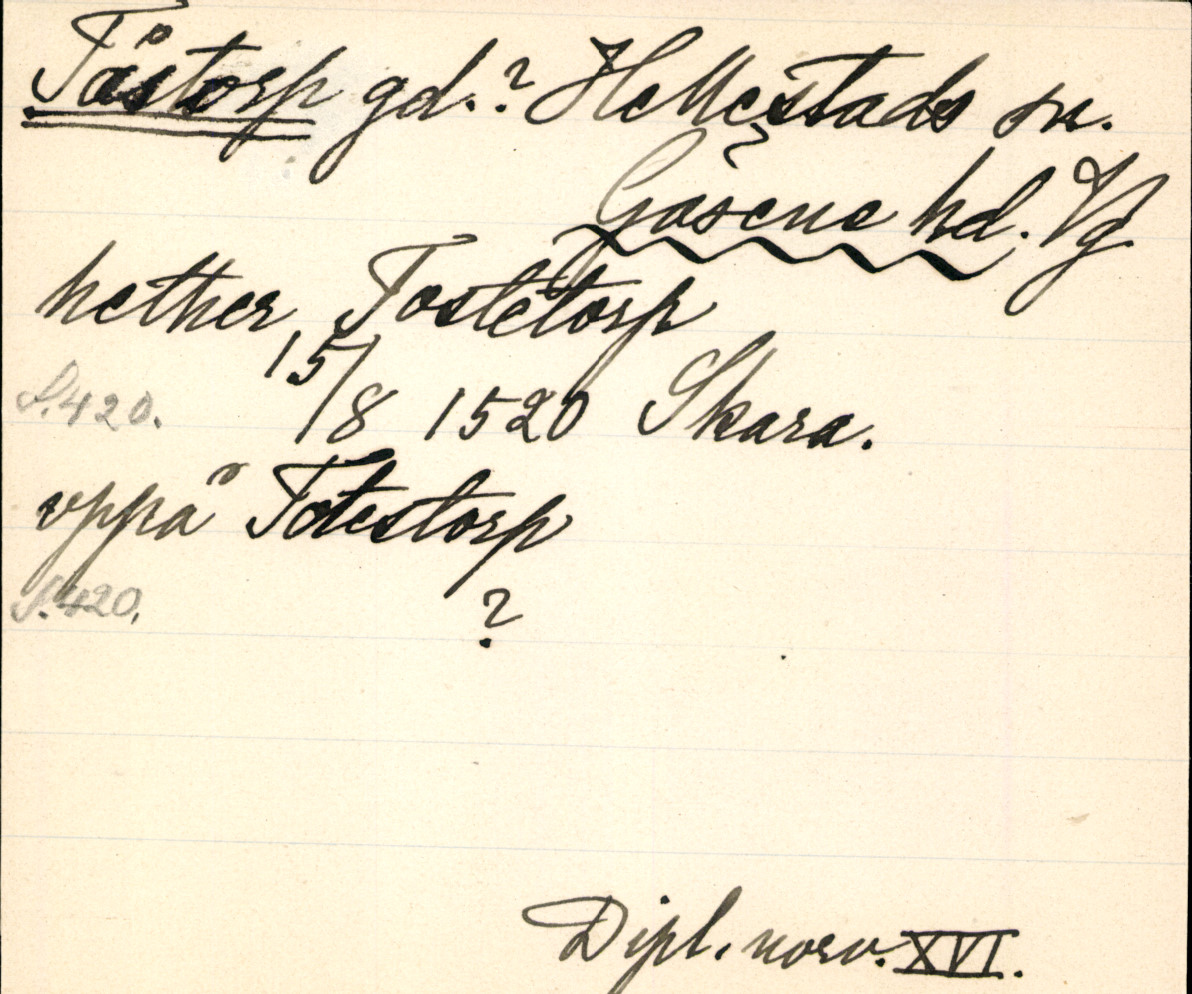 Tåstorp gd.? Hellestads sn.
Gäsene hd. Vg
hether Tostetorp
15/8 1520 Skara.
S. 420.
vppå Totestorp
S. 420. ?
Dipl. norv. XVI.